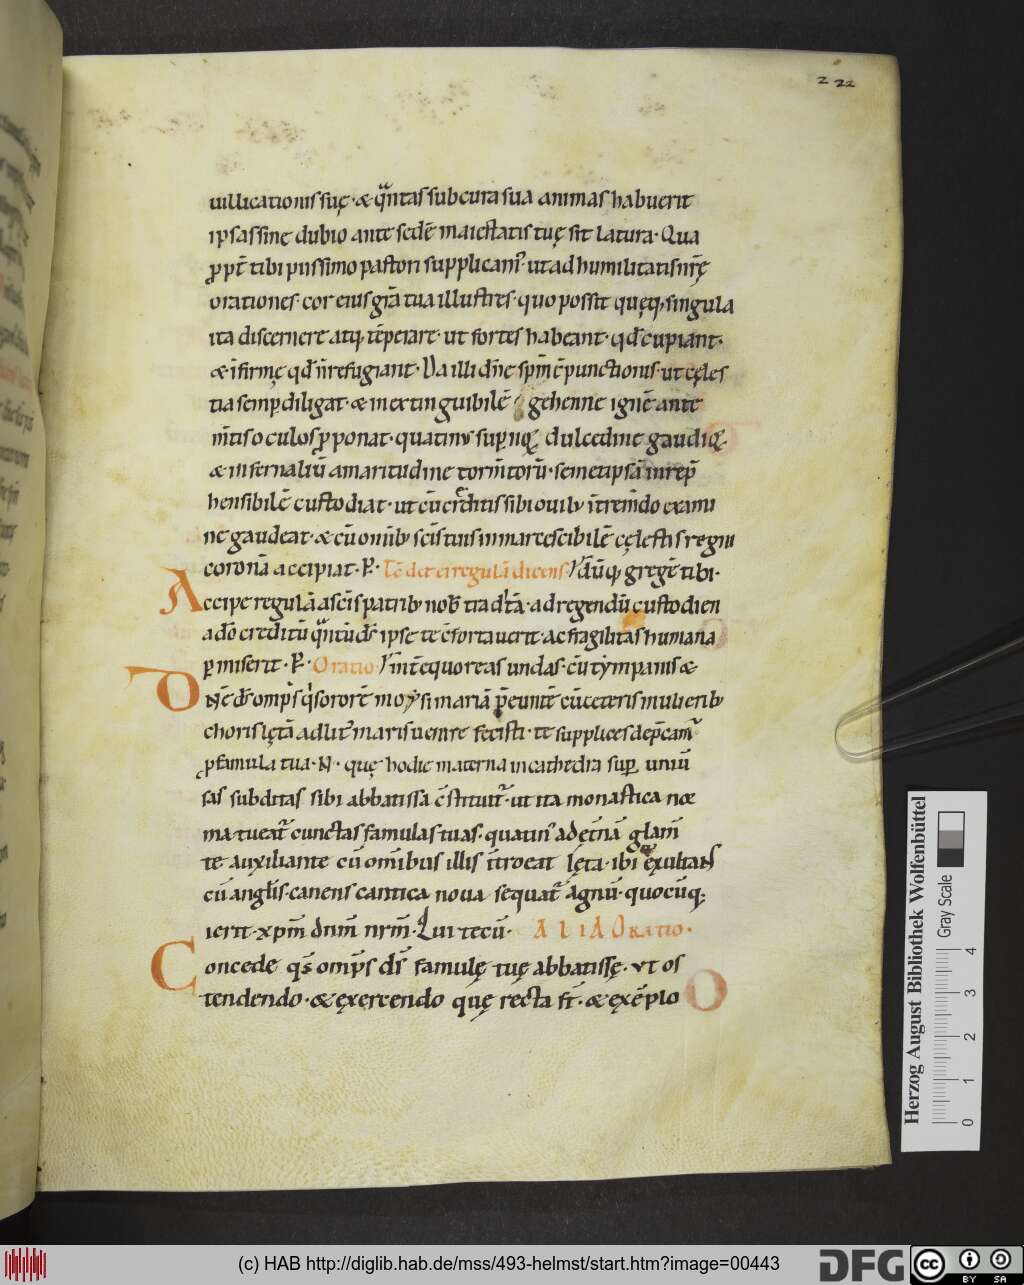 2 22
uillicationis suę · & qͣntas sub cura sua animas habuerit
ipsas sine dubio ante sedē maiestatis tuę sit latura · Qua
ꝓpt̄ tibi piissimo pastori supplicam᾽ ut ad humilitatis nr̄ę
orationes · cor eius gr̄a tua illustres · quo possit quęq; singula
ita discernere atq; tēperare · ut fortes habeant · qd̄ cupiant ·
& īfirmę qd̄ n̄ refugiant · Da illi dn̄e spm̄ cōpunctionis · ut cęles
tia semp̲ diligat · & inextinguibilē gehennę ignē ante
m̄tis oculos ꝓponat · quatinus sup̲noꝝ dulcedine gaudioꝝ
& infernaliū amaritudine torm̄toru̅ · semetipsā inrep̄
hensibilē custodiat · ut cū cr̄ditis sibi ouib; ī trem̄do exami
ne gaudeat · & cū om̄ib; scīs tuis inmarcescibilē cęlestis regni
coronā accipiat · P̲ · Tc̄ det ei regulā dicens · dūq; gregē tibi ·
Accipe regulā a scīs patrib; nob̄ tradi̅tā · ad regendū custodien
adō creditū qͣntū ds̄ ipse te cōfortauerit · ac fragilitas humana
p̲miserit · P̲ · Oratio · in t̄ equoreas undas · cū tympanis &
Dn̄e ds̄ omp̄s qͥ sororē moysi mariā p̄euntē cū ceteris mulierib;
choris lętā ad lit᾽ maris uenire fecisti · te supplices dep̄cam᾽
ꝓ famula tua · N · quę hodie materna in cathedra sup̲ uniū
sas subditas sibi abbatissa cōstituit᾽ · ut ita monastica nor
ma tueat᾽ cunctas famulas tuas · quatin᾽ ad et̄nā glam̄
te auxiliante cū om̄ibus illis ītroeat lęta · ibi exultans
cū angl̄is · canens cantica noua sequat᾽ agnū · quocūq;
ierit · xpm̄ dnm̄ nrm̄ · Qui tecū · ALIA ORATIO ·
Concede qs̄ omp̄s ds̄ famulę tuę abbatissę · ut os
tendendo · & exercendo quę recta st̄ · & exēplo
Herzog August Bibliothek Wolfenbüttel
Gray Scale
0 1 2 3 4
(c) HAB http://diglib.hab.de/mss/493-helmst/start.htm?image=00443
DFG
cc BY SA